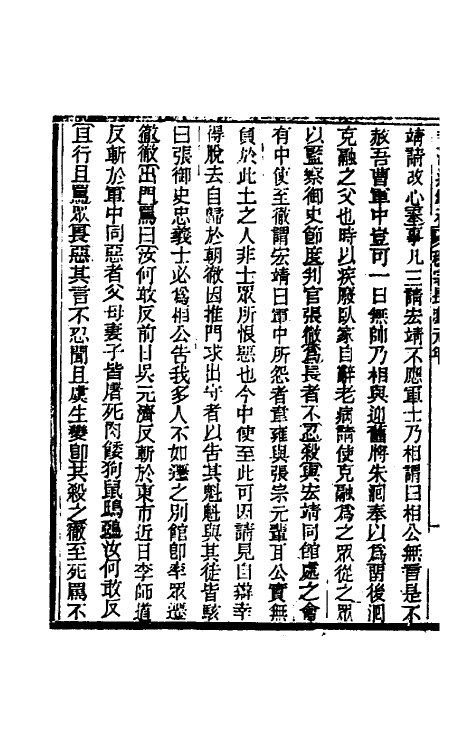 靖請改心事凡三請宏靖不應軍士乃相謂曰相公無言是不
赦吾曹軍中豈可一日無帥乃相與迎舊將朱洄奉以為留後洄
克融之父也時以疾廢臥家自辭老病請使克融為之眾從之眾
以監察御史節度判官張徹為長者不忍殺與宏靖同館處之會
有中使至徹謂宏靖曰軍中所怨者韋雍與張宗元輩耳公實無
負於此土之人非士眾所恨惡也今中使至此可因請見自辯幸
得脫去自歸於朝徹因推門求出守者以告其魁魁與其徒皆駭
曰張御史忠義士必為相公告我多人不如遷之別館即率眾遷
徹徹出門罵曰汝何敢反前日吳元濟反斬於東市近日李師道
反斬於軍中同惡者父母妻子皆屠死肉餧狗鼠鴟鴞汝何敢反
且行且罵眾畏惡其言不忍聞且虞生變即共殺之徹至死罵不